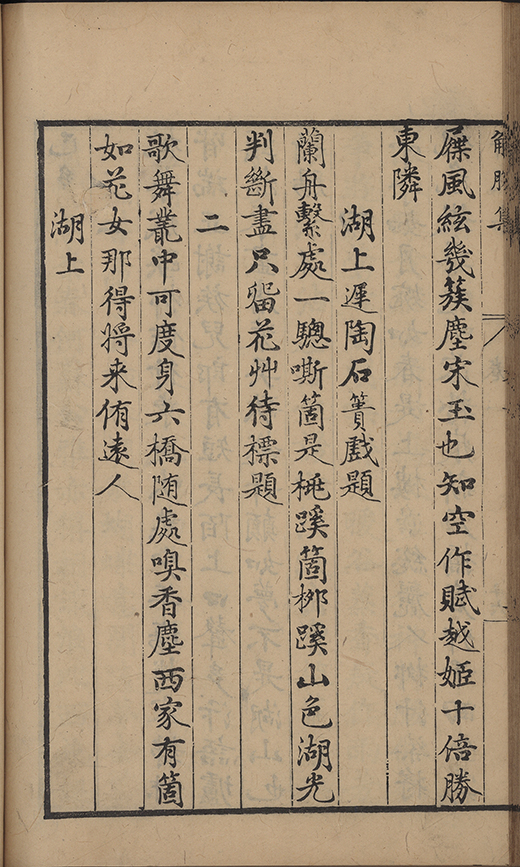 解脫集
屧風絃幾簇塵宋玉也知空作賦越姬十倍勝
東隣
湖上遲陶石簣戲題
蘭舟繫處一驄嘶箇是桃蹊箇柳蹊山色湖光
判斷盡只畱花艸待標題
二
歌舞叢中可度身六橋随處嗅香塵西家有箇
如花女那得将来侑遠人
湖上